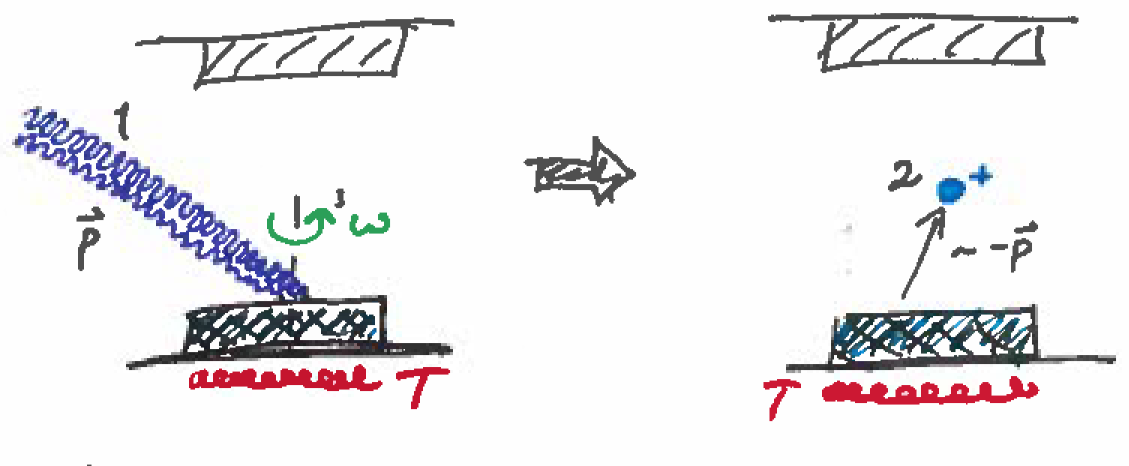 1
p⃗
ω
T
2 +
~ -p⃗
T